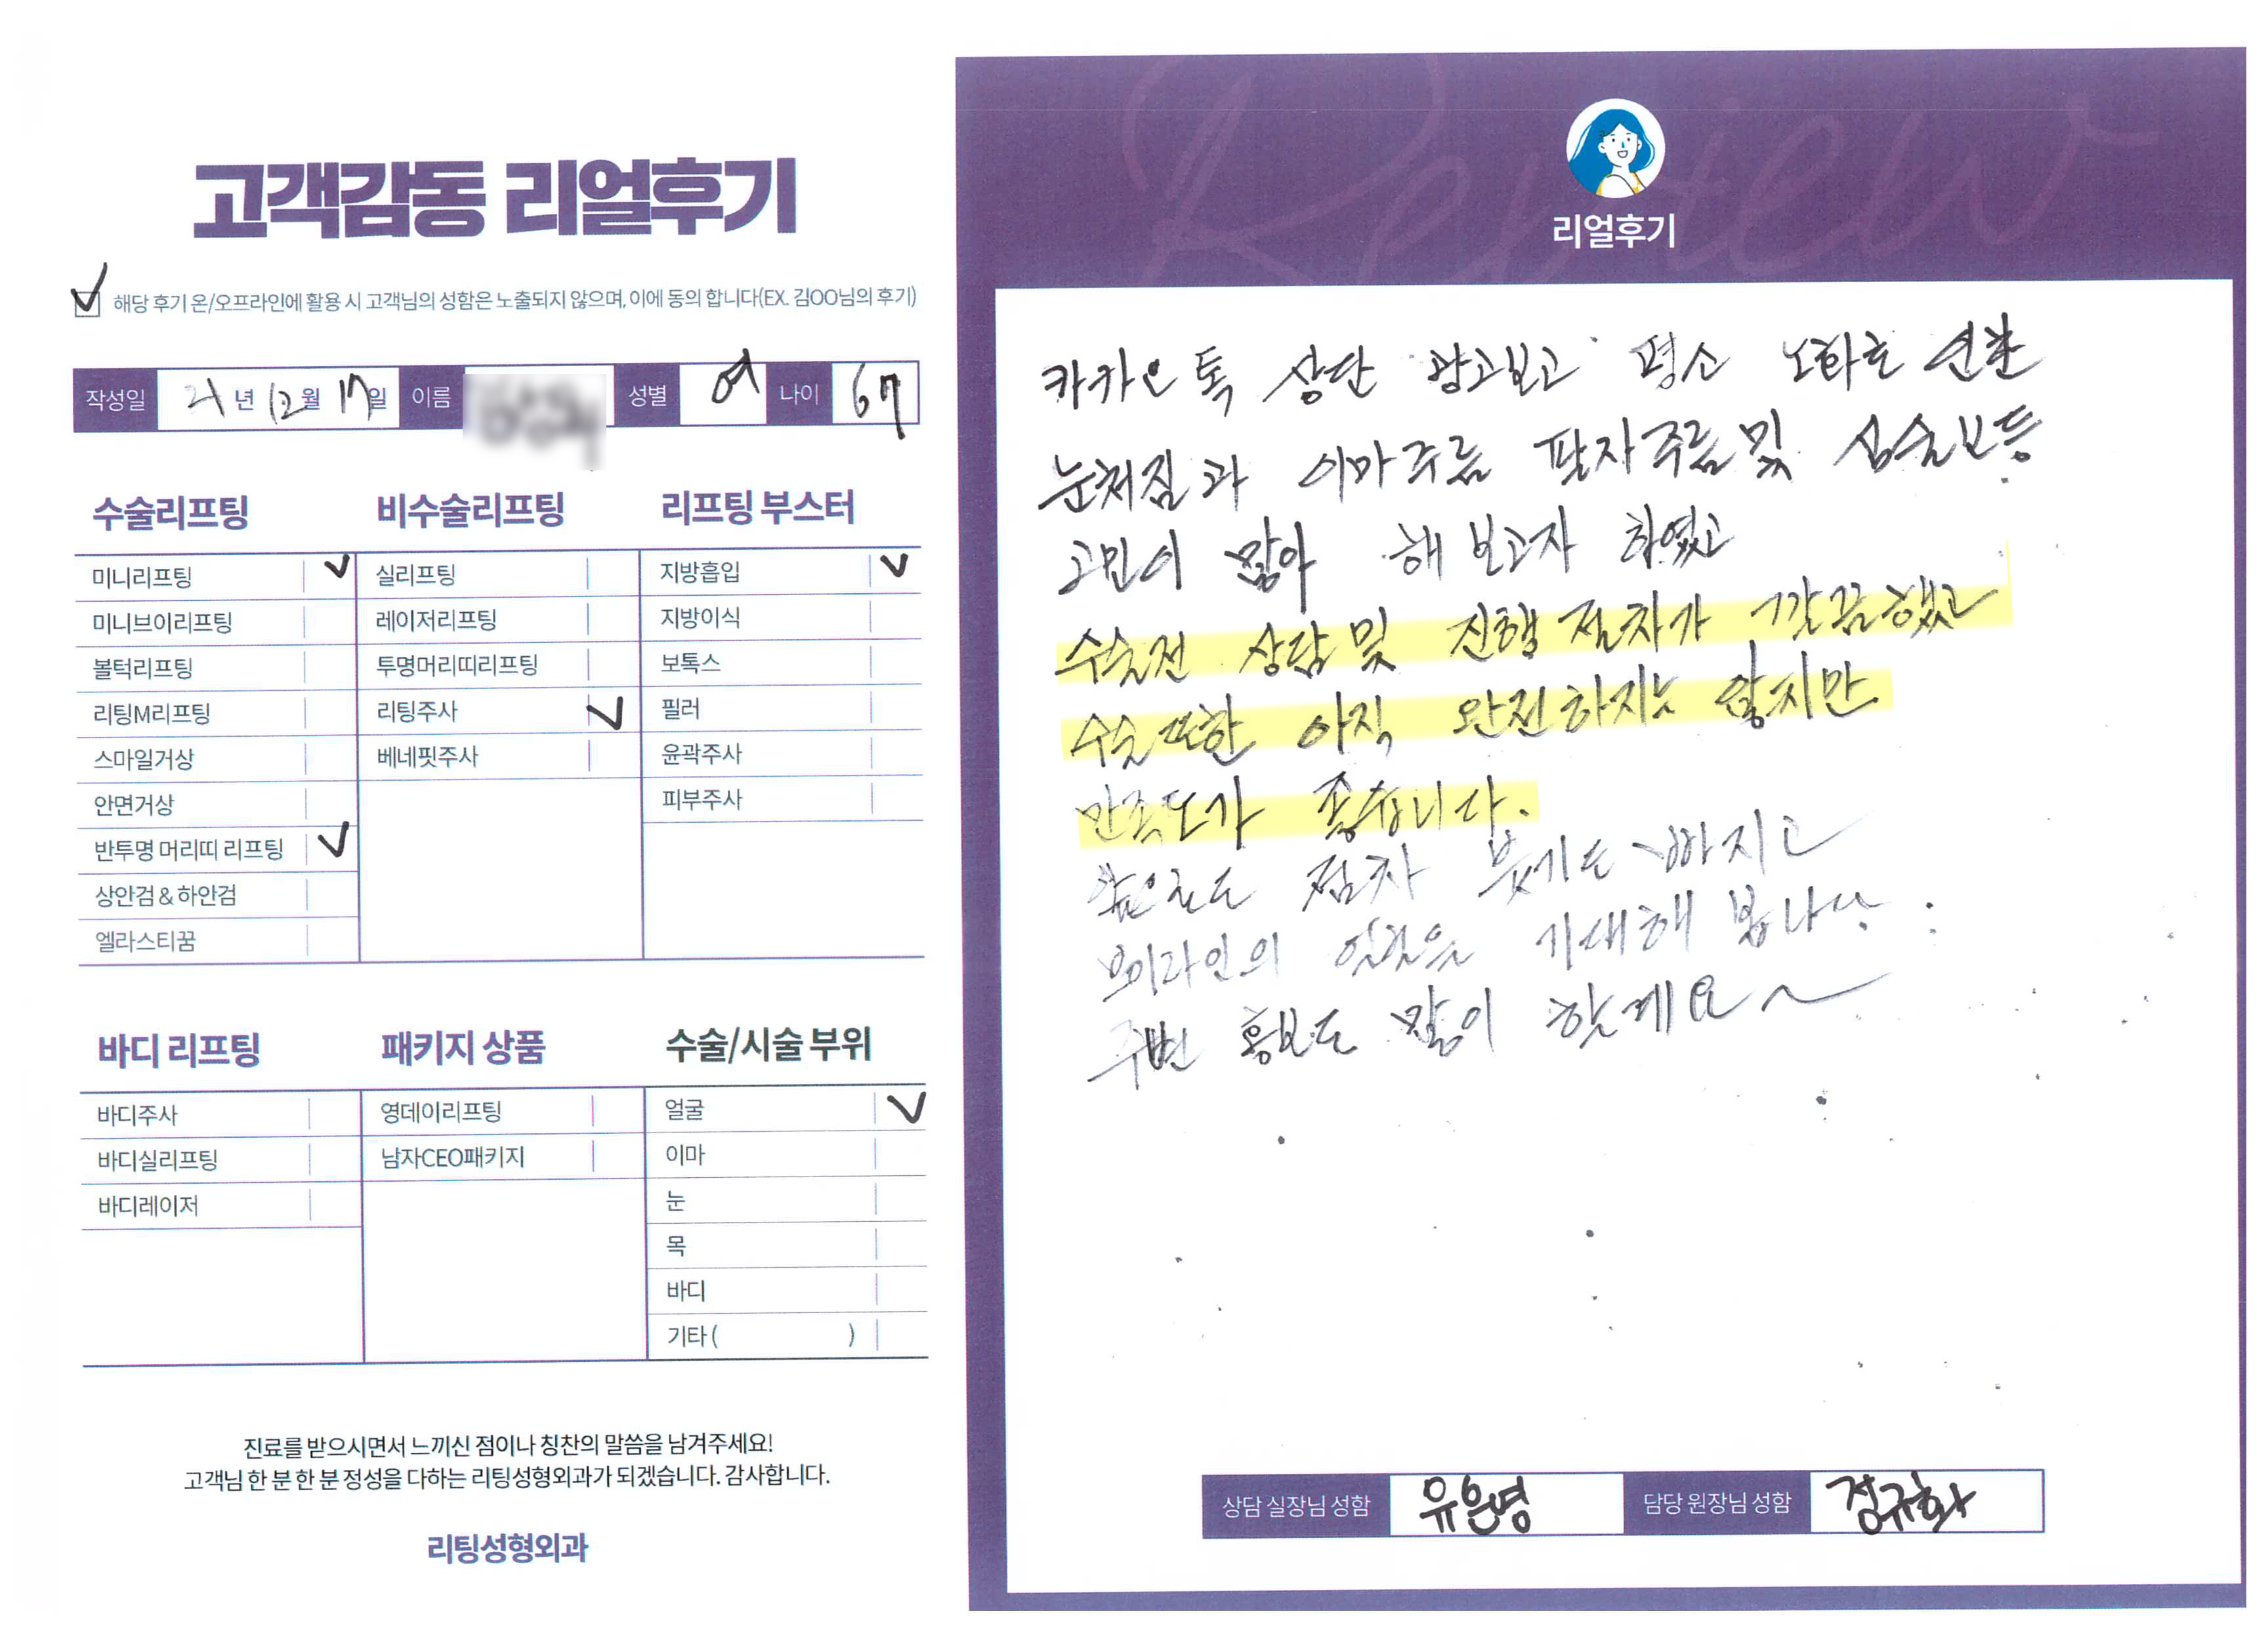 고객감동 리얼후기
해당 후기 온/오프라인에 활용 시 고객님의 성함은 노출되지 않으며, 이에 동의 합니다(EX. 김OO님의 후기)
작성일 21년 12월 17일 이름 성별 여 나이 67
수술리프팅
미니리프팅
미니브이리프팅
볼턱리프팅
리팅M리프팅
스마일거상
안면거상
반투명 머리띠 리프팅
상안검&하안검
엘라스티꿈
비수술리프팅
실리프팅
레이저리프팅
투명머리띠리프팅
리팅주사
베네핏주사
리프팅 부스터
지방흡입
지방이식
보톡스
필러
윤곽주사
피부주사
바디 리프팅
바디주사
바디실리프팅
바디레이저
패키지 상품
영데이리프팅
남자CEO패키지
수술/시술 부위
얼굴
이마
눈
목
바디
기타( )
진료를 받으시면서 느끼신 점이나 칭찬의 말씀을 남겨주세요!
고객님 한 분 한 분 정성을 다하는 리팅성형외과가 되겠습니다. 감사합니다.
리팅성형외과
Review
리얼후기
카카오톡 상단 광고보고 평소 노화로 인한
눈처짐과 이마주름 팔자주름및 심술보등
고민이 많아 해 보고자 하였고
수술전 상담 및 진행 절차가 깔끔했고
수술또한 아직 완전하지는 않지만
만족도가 좋습니다.
앞으로도 점차 붓기도 빠지고
브이라인의 얼굴을 기대해 봅니다.
주변 홍보도 많이 할게요~
상담 실장님 성함 유은영 담당 원장님 성함 정규화